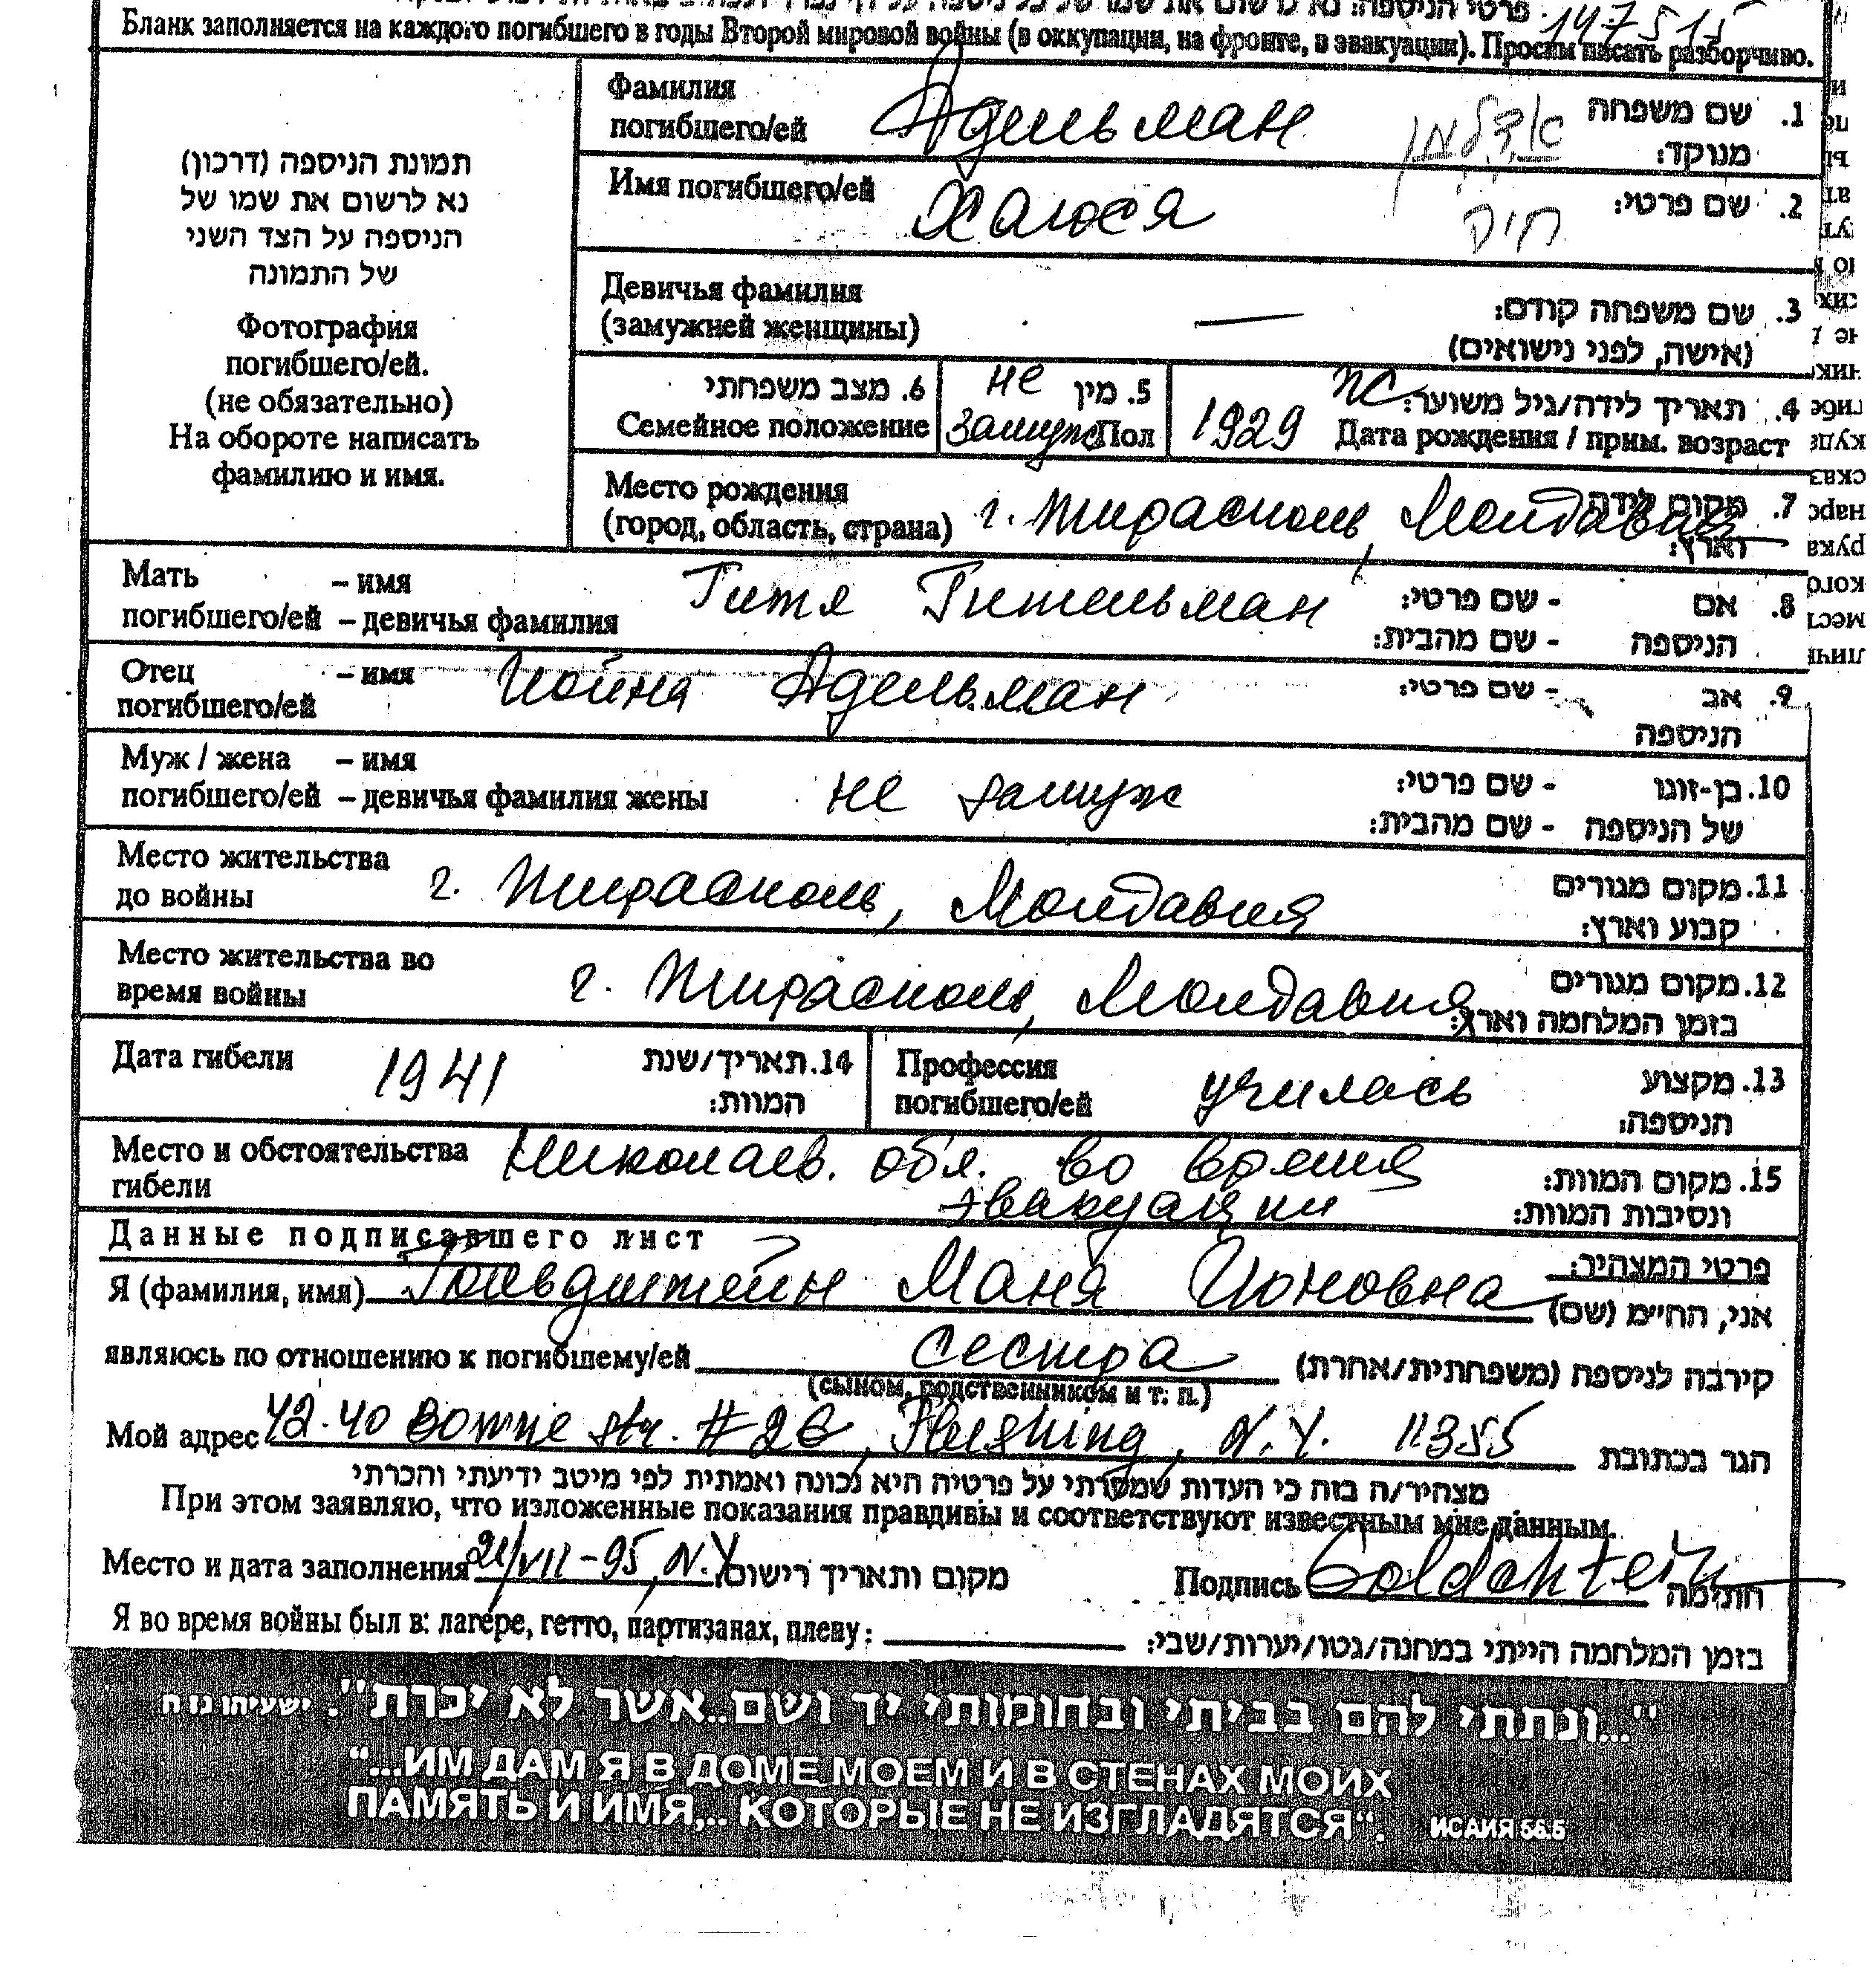 147515
Бланк заполняется на каждого погибшего в годы Второй мировой войны (в оккупации, на фронте, в эвакуации). Просим писать разборчиво.
תמונת הניספה (דרכון)
נא לרשום את שמו של
הניספה על הצד השני
של התמונה
Фотография
погибшего/ей.
(не обязательно)
На обороте написать
фамилию и имя.
Фамилия
погибшего/ей Адельман אדלמן 1. שם משפחה
מנוקד:
Имя погибшего/ей Хаюся חיה 2. שם פרטי:
Девичья фамилия
(замужней женщины) — 3. שם משפחה קודם:
(אישה, לפני נישואים)
6. מצב משפחתי
Семейное положение
не 5. מין
замуж Пол
4. תאריך לידה/גיל משוער:
1929 Дата рождения / прим. возраст
Место рождения
(город, область, страна) г. Тирасполь, Молдавия 7. מקום לידה
וארץ:
Мать – имя Гитя Гительман 8. אם - שם פרטי:
погибшего/ей – девичья фамилия הניספה - שם מהבית:
Отец – имя Иойна Адельман 9. אב - שם פרטי:
погибшего/ей הניספה
Муж / жена – имя не замуж 10. בן-זוגו - שם פרטי:
погибшего/ей – девичья фамилия жены של הניספה - שם מהבית:
Место жительства г. Тирасполь, Молдавия 11. מקום מגורים
до войны קבוע וארץ:
Место жительства во г. Тирасполь, Молдавия 12. מקום מגורים
время войны בזמן המלחמה וארץ:
Дата гибели 1941 14. תאריך/שנת
המוות:
Профессия училась 13. מקצוע
погибшего/ей הניספה:
Место и обстоятельства Николаев. обл. во время 15. מקום המוות:
гибели эвакуации ונסיבות המוות:
Данные подписавшего лист פרטי המצהיר:
Я (фамилия, имя) Гольдштейн Маня Ионовна אני, החי״מ (שם)
являюсь по отношению к погибшему/ей сестра קירבה לניספה (משפחתית/אחרת)
(сыном, родственником и т. п.)
Мой адрес 42-40 Bowne str. #2B, Flushing, N.Y. 11355 הגר בכתובת
מצהיר/ה בזה כי העדות שמסרתי על פרטיה היא נכונה ואמתית לפי מיטב ידיעתי והכרתי
При этом заявляю, что изложенные показания правдивы и соответствуют известным мне данным.
Место и дата заполнения 21/VII-95, N.Y מקום ותאריך רישום Подпись Goldshtein חתימה
Я во время войны был в: лагере, гетто, партизанах, плену: בזמן המלחמה הייתי במחנה/גטו/יערות/שבי:
"...ונתתי להם בביתי ובחומותי יד ושם..אשר לא יכרת". ישעיהו נו ה
"...ИМ ДАМ Я В ДОМЕ МОЕМ И В СТЕНАХ МОИХ
ПАМЯТЬ И ИМЯ,.. КОТОРЫЕ НЕ ИЗГЛАДЯТСЯ". ИСАИЯ 56.5